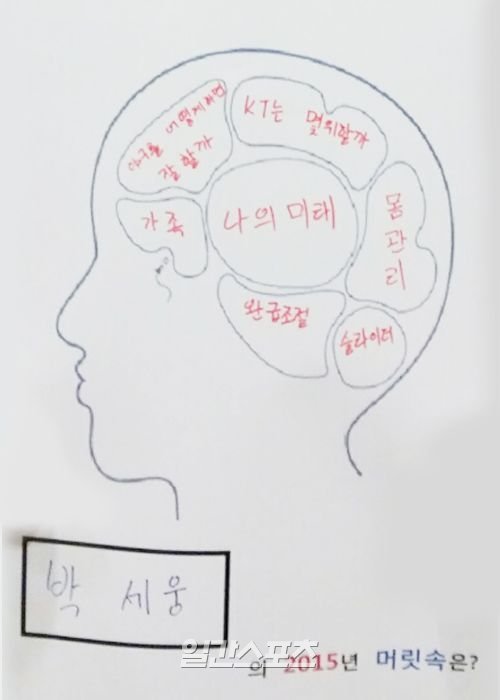 야구를 어떻게하면
잘할까
KT는 몇위할까
가족
나의 미래
몸
관
리
완급조절
슬라이더
박세웅
일간스포츠
의 2015년 머릿속은?